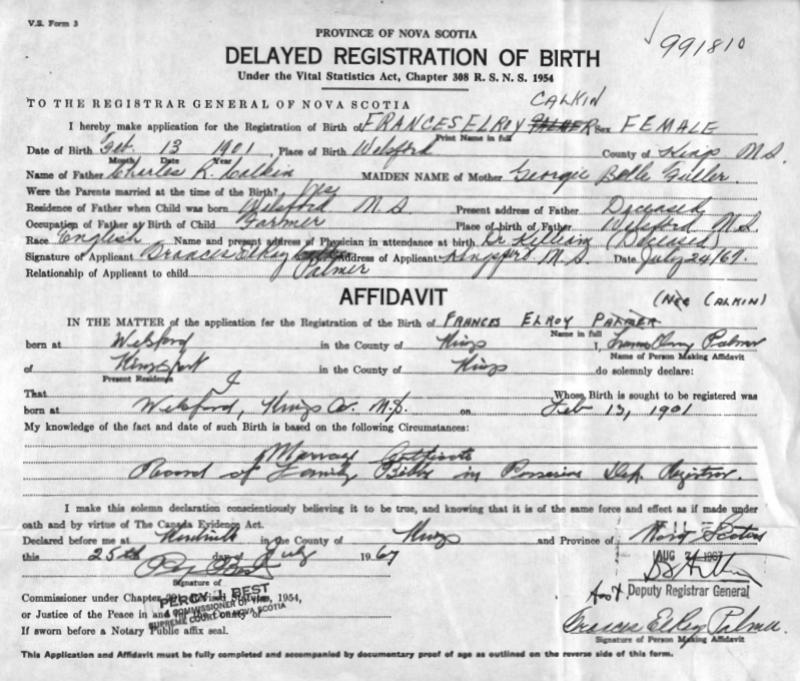 V.S. Form 3
991810
PROVINCE OF NOVA SCOTIA
DELAYED REGISTRATION OF BIRTH
Under the Vital Statistics Act, Chapter 308 R. S. N. S. 1954
TO THE REGISTRAR GENERAL OF NOVA SCOTIA CALKIN
I hereby make application for the Registration of Birth of FRANCES ELROY PALMER Sex FEMALE
Print Name in full
Date of Birth Feb. 13 1901 Place of Birth Welsford County of Kings N.S.
Month Date Year
Name of Father Charles R. Calkin MAIDEN NAME of Mother Georgie Belle Fuller.
Were the Parents married at the time of the Birth? Yes
Residence of Father when Child was born Welsford N.S. Present address of Father Deceased
Occupation of Father at Birth of Child Farmer Place of birth of Father Welsford N.S.
Race English Name and present address of Physician in attendance at birth Dr Killiam (Deceased)
Signature of Applicant Frances ElRoy Palmer Address of Applicant Kingsport N.S. Date July 24/67.
Relationship of Applicant to child
AFFIDAVIT
(Nee CALKIN)
IN THE MATTER of the application for the Registration of the Birth of FRANCES ELROY PALMER
Name in full
born at Welsford in the County of Kings I, Frances Elroy Palmer
Name of Person Making Affidavit
of Kingsport in the County of Kings do solemnly declare:
Present Residence
That I Whose Birth is sought to be registered was
born at Welsford, Kings Co. N.S. on Feb 13, 1901
My knowledge of the fact and date of such Birth is based on the following Circumstances:
Marriage Certificate
Record of Family Bible in Possession Dep. Registrar.
I make this solemn declaration conscientiously believing it to be true, and knowing that it is of the same force and effect as if made under
oath and by virtue of The Canada Evidence Act.
Declared before me at in the County of Kings and Province of Nova Scotia
this 25th day of July 1967
Signature of
AUG 1967
Deputy Registrar General
Commissioner under Chapter Revised Statutes, 1954,
PERCY J. BEST
A COMMISSIONER OF THE
SUPREME COURT OF NOVA SCOTIA
or Justice of the Peace in and for the County of
If sworn before a Notary Public affix seal.
Frances ElRoy Palmer
Signature of Person Making Affidavit
This Application and Affidavit must be fully completed and accompanied by documentary proof of age as outlined on the reverse side of this form.